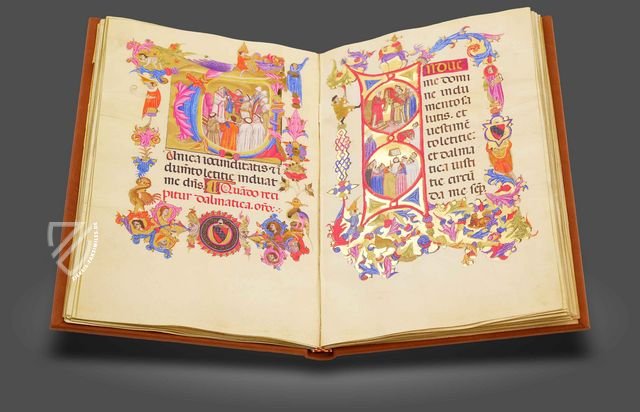 Unica iocunditatis. ⁊ i
dumto letitie induat
me dn̄s. Quando reci
pitur dalmatica. oro:
Indue
me domi
ne indu
mento sa
lutis. et
uestime͂
to letitie.
et dalma
tica iusti
tie circu͂
da me sep͂.